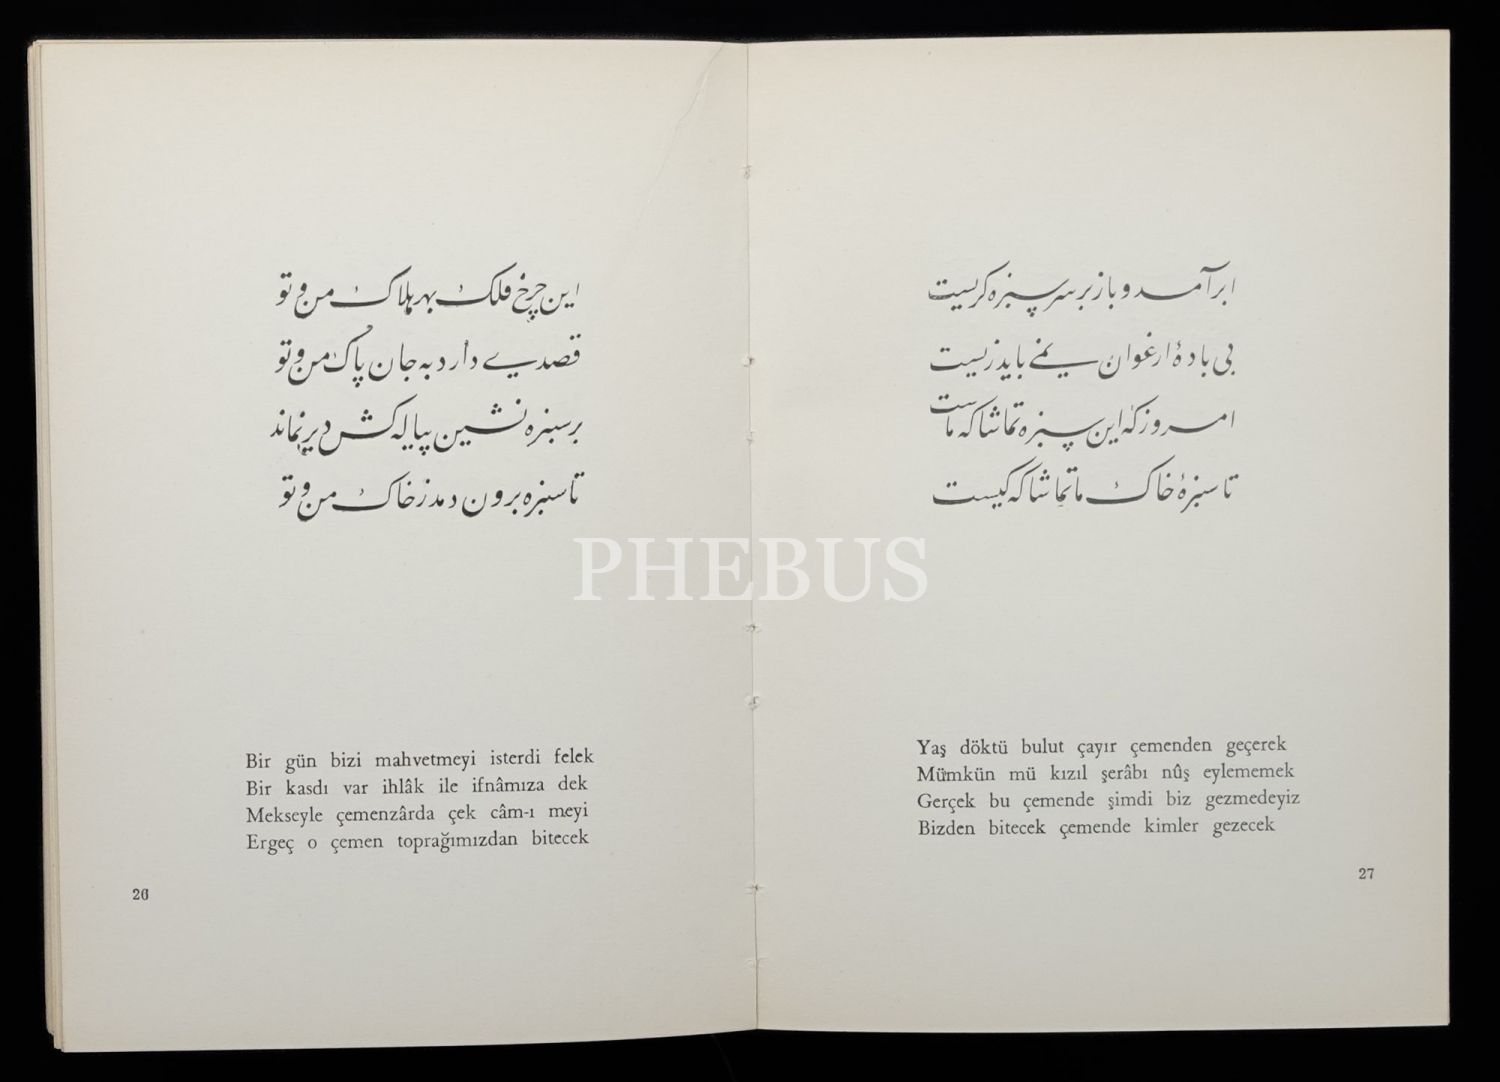 این چرخ فلک بهر هلاک من و تو
قصدی دارد به جان پاک من و تو
بر سبزه نشین پیاله کش دیر نماند
تا سبزه برون دمد ز خاک من و تو
Bir gün bizi mahvetmeyi isterdi felek
Bir kasdı var ihlâk ile ifnâmıza dek
Mekseyle çemenzârda çek câm-ı meyi
Ergeç o çemen toprağımızdan bitecek
26
ابر آمد و باز بر سر سبزه گریست
بی بادهٔ ارغوان نمی باید زیست
امروز که این سبزه تماشاگه ماست
تا سبزهٔ خاک ما تماشاگه کیست
Yaş döktü bulut çayır çemenden geçerek
Mümkün mü kızıl şerâbı nûş eylememek
Gerçek bu çemende şimdi biz gezmedeyiz
Bizden bitecek çemende kimler gezecek
27
PHEBUS